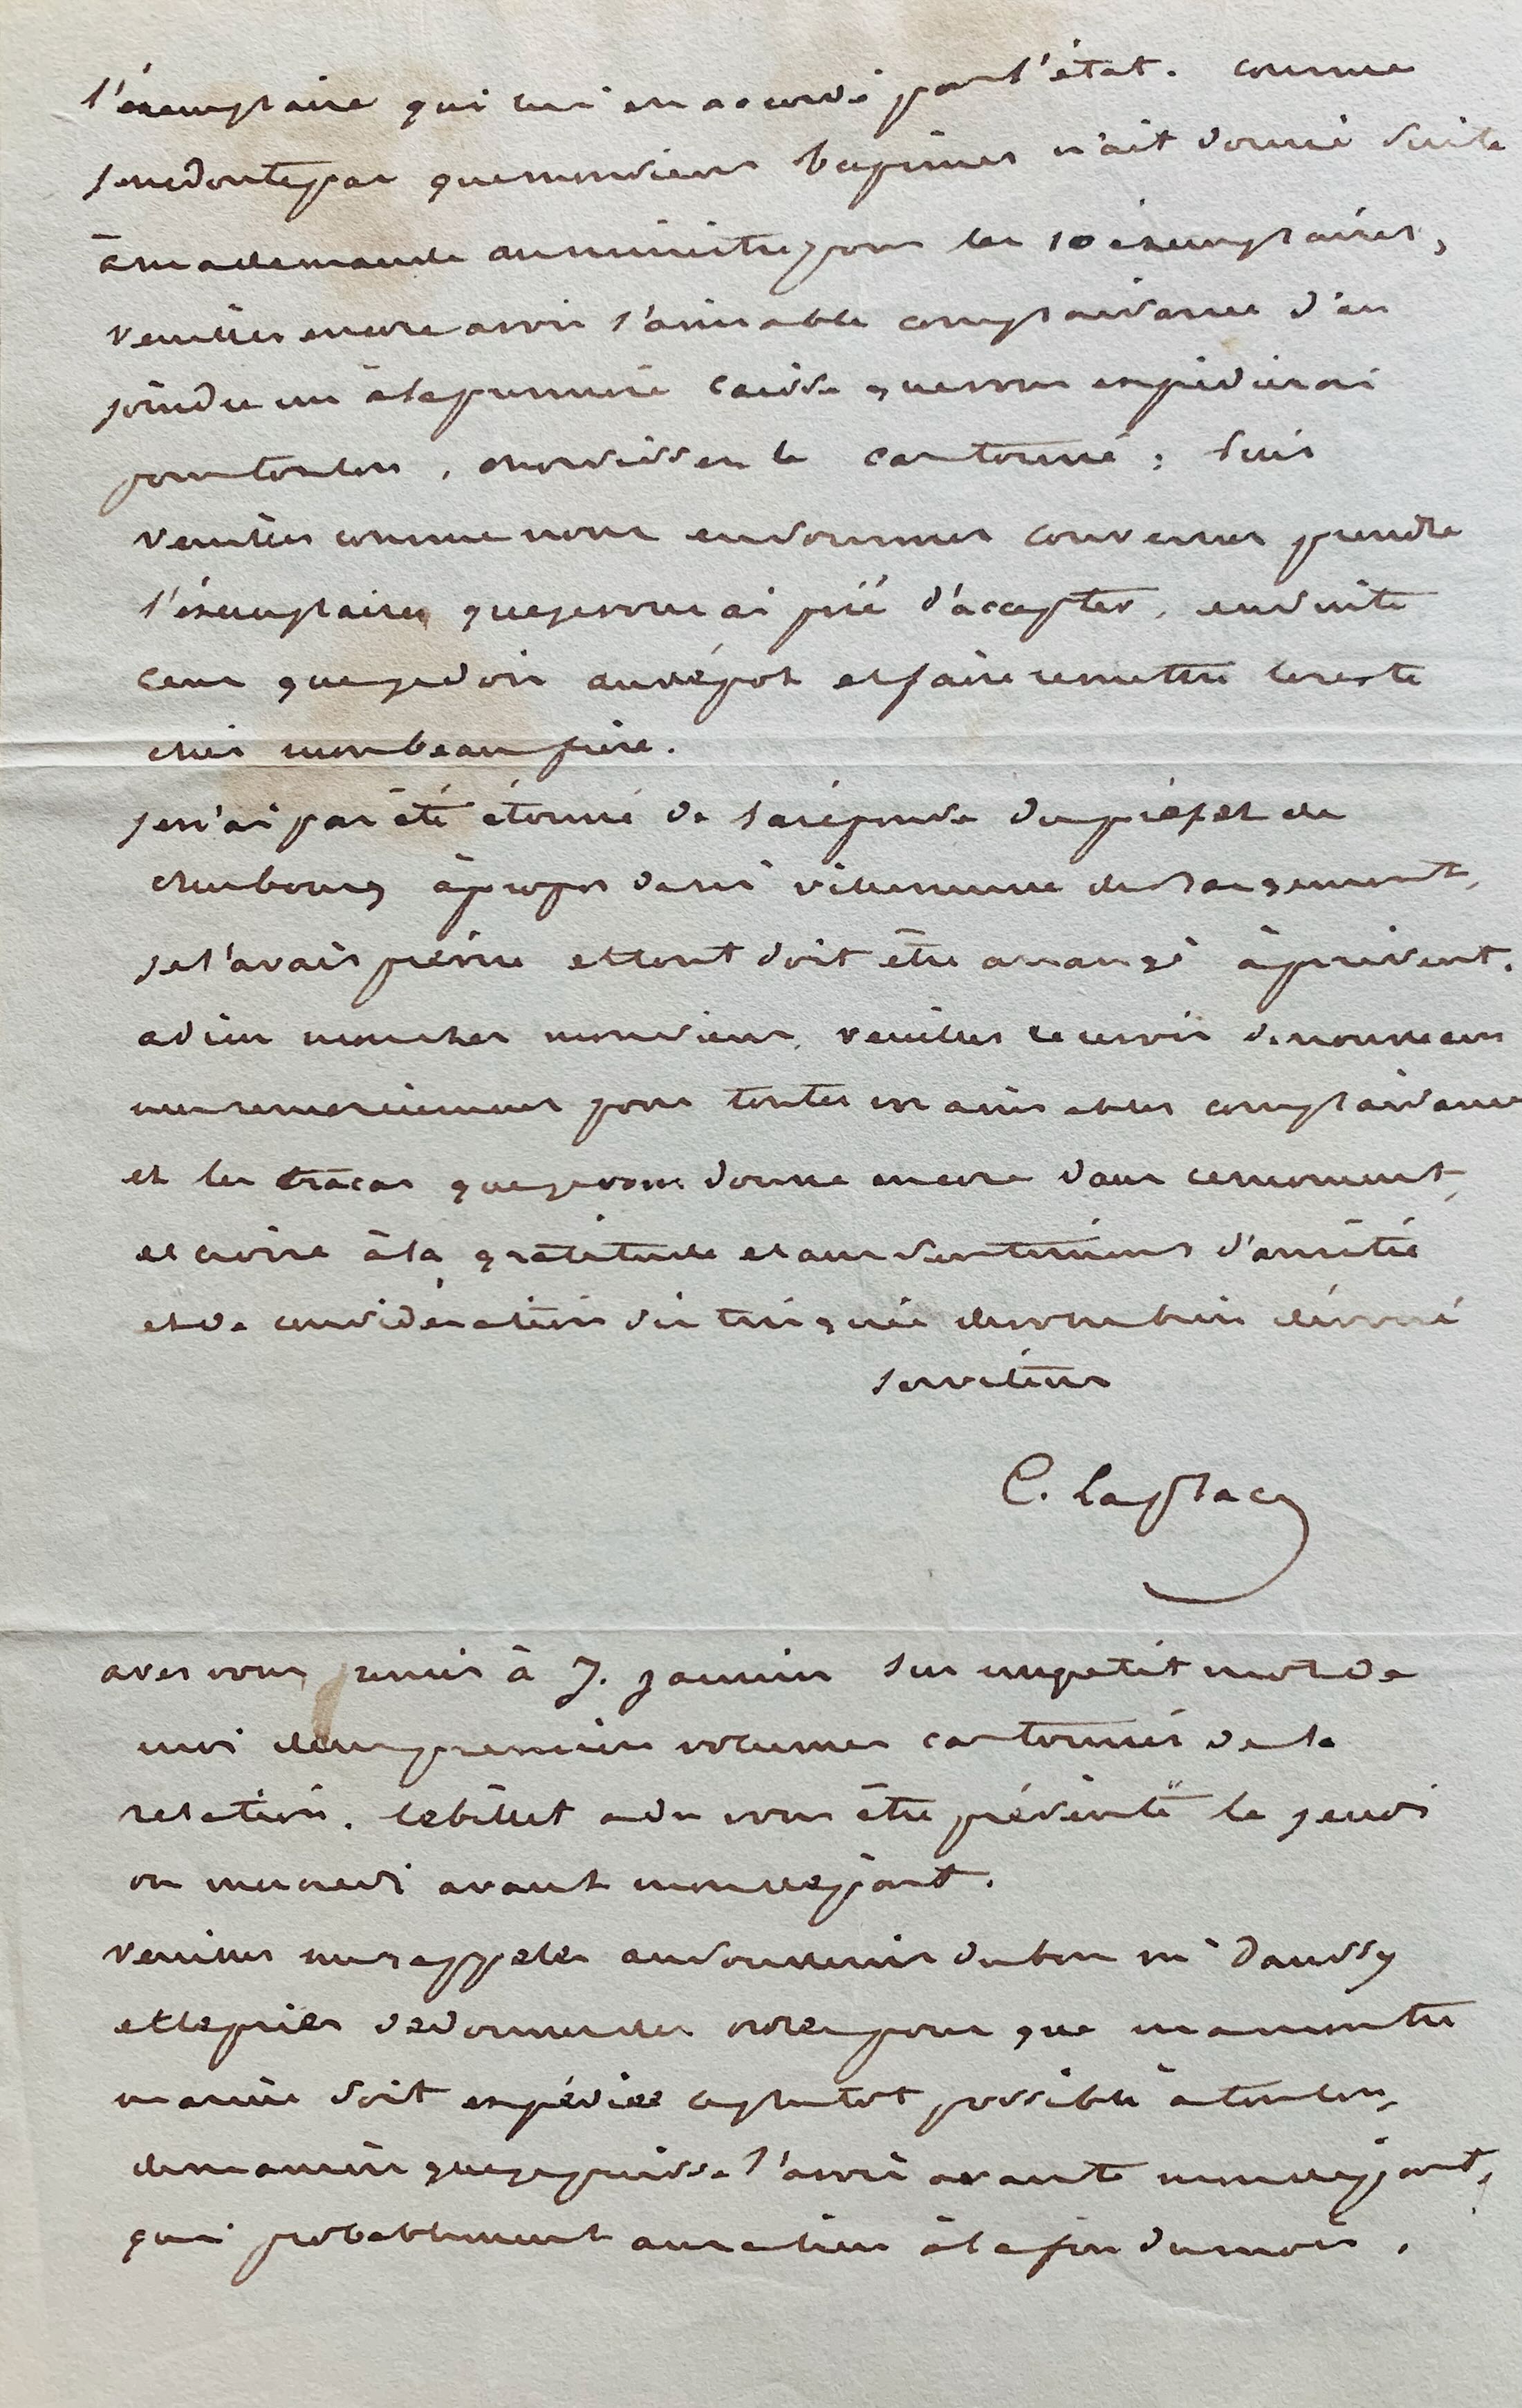 l'exemplaire qui lui en accordé par l'état. comme
je ne doute pas que monsieur n'ait donné suite
à ma demande au ministre pour les 10 exemplaires,
veuillez encore avoir l'aimable complaisance d'en
joindre un à la première caisse que vous expédierai
pour toulon, choisissez le cartonné ;
veuillez comme nous en sommes convenus prendre
l'exemplaire que je vous ai prié d'accepter, ensuite
ceux que je dois au dépôt et faire remettre le reste
chez mon beau frère.
je n'ai pas été étonné de la réponse du préfet de
cherbourg à propos de chargement,
je l'avais prévue et tout doit être arrangé à présent.
adieu mon cher monsieur, veuillez recevoir de nouveau
mes remerciemens pour toutes vos aimables complaisances
et les tracas que je vous donne encore dans ce moment,
et croire à la gratitude et aux sentiments d'amitié
et de considération de votre bien dévoué
serviteur
C. Laplace
avez vous remis à J. Jannin sur un petit mot de
moi deux premiers volumes cartonnés de la
relation. le billet a du vous être présenté le jeudi
ou mercredi avant mon départ.
veuillez me rappeler au souvenir du bon mr Daussy
et le prier de donner des ordres pour que ma montre
marine soit expédiée le plutot possible à toulon,
de manière que je puisse l'avoir avant mon départ,
qui probablement aura lieu à la fin du mois.